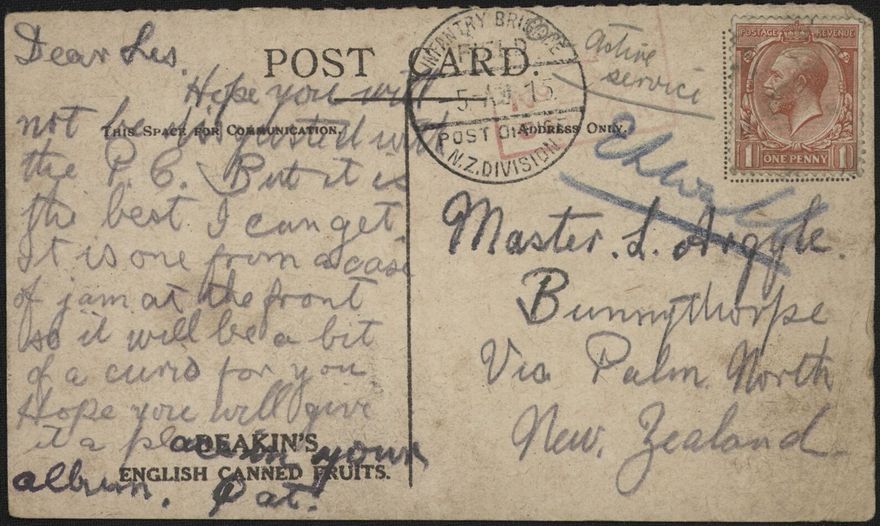 Dear Les.
POST CARD.
Hope you will
not be disgusted with
THIS SPACE FOR COMMUNICATION.
the P.C. But it is
the best I can get.
It is one from a case
of jam at the front
so it will be a bit
of a curio for you
Hope you will give
it a place in your
DEAKIN'S
ENGLISH CANNED FRUITS.
album. Pat.
INFANTRY BRIGADE
FIELD
POST OFFICE
N.Z. DIVISION
Active
service
POSTAGE REVENUE
1 ONE PENNY 1
ADDRESS ONLY.
Master. L. Argyle.
Bunnythorpe
Via Palm. North
New. Zealand